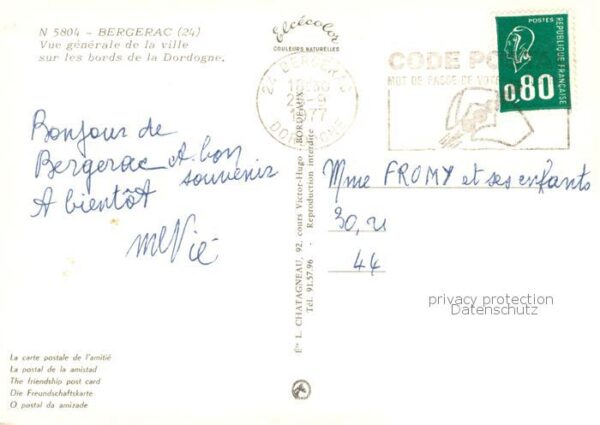 N 5804 - BERGERAC (24)
Vue générale de la ville
sur les bords de la Dordogne.
Elcécolor
COULEURS NATURELLES
24 BERGERAC
1977
DORDOGNE
CODE POSTAL
MOT DE PASSE DE VO
POSTES
REPUBLIQUE FRANÇAISE
0,80
Bonjour de
Bergerac A bon
souvenir
A bientôt
Mme FROMY et ses enfants
30,
44
Ets L. CHATAGNEAU, 92, cours Victor-Hugo - BORDEAUX
Tél. 91.57.96 - Reproduction interdite
privacy protection
Datenschutz
La carte postale de l'amitié
La postal de la amistad
The friendship post card
Die Freundschaftskarte
O postal da amizade